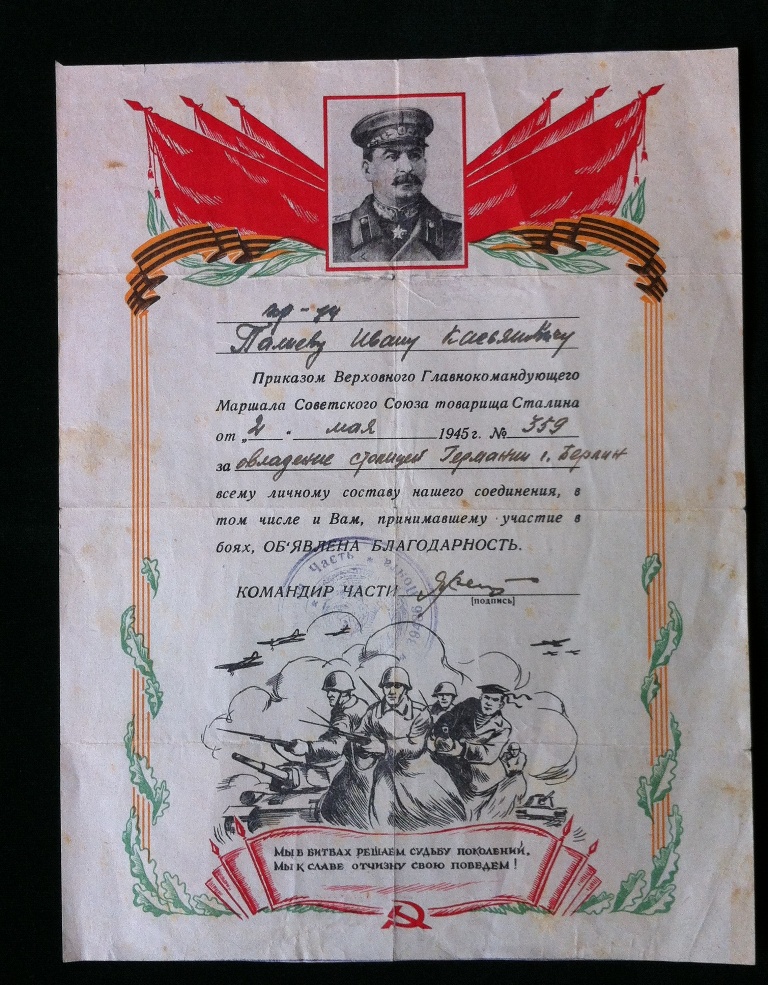 гр-цу
Палиеву Ивану Касьяновичу
Приказом Верховного Главнокомандующего
Маршала Советского Союза товарища Сталина
от „2 " мая 1945 г. № 359
за овладение столицей Германии г. Берлин
всему личному составу нашего соединения, в
том числе и Вам, принимавшему участие в
боях, ОБ'ЯВЛЕНА БЛАГОДАРНОСТЬ.
КОМАНДИР ЧАСТИ
(подпись)
Часть
МЫ В БИТВАХ РЕШАЕМ СУДЬБУ ПОКОЛЕНИЙ,
МЫ К СЛАВЕ ОТЧИЗНУ СВОЮ ПОВЕДЕМ!